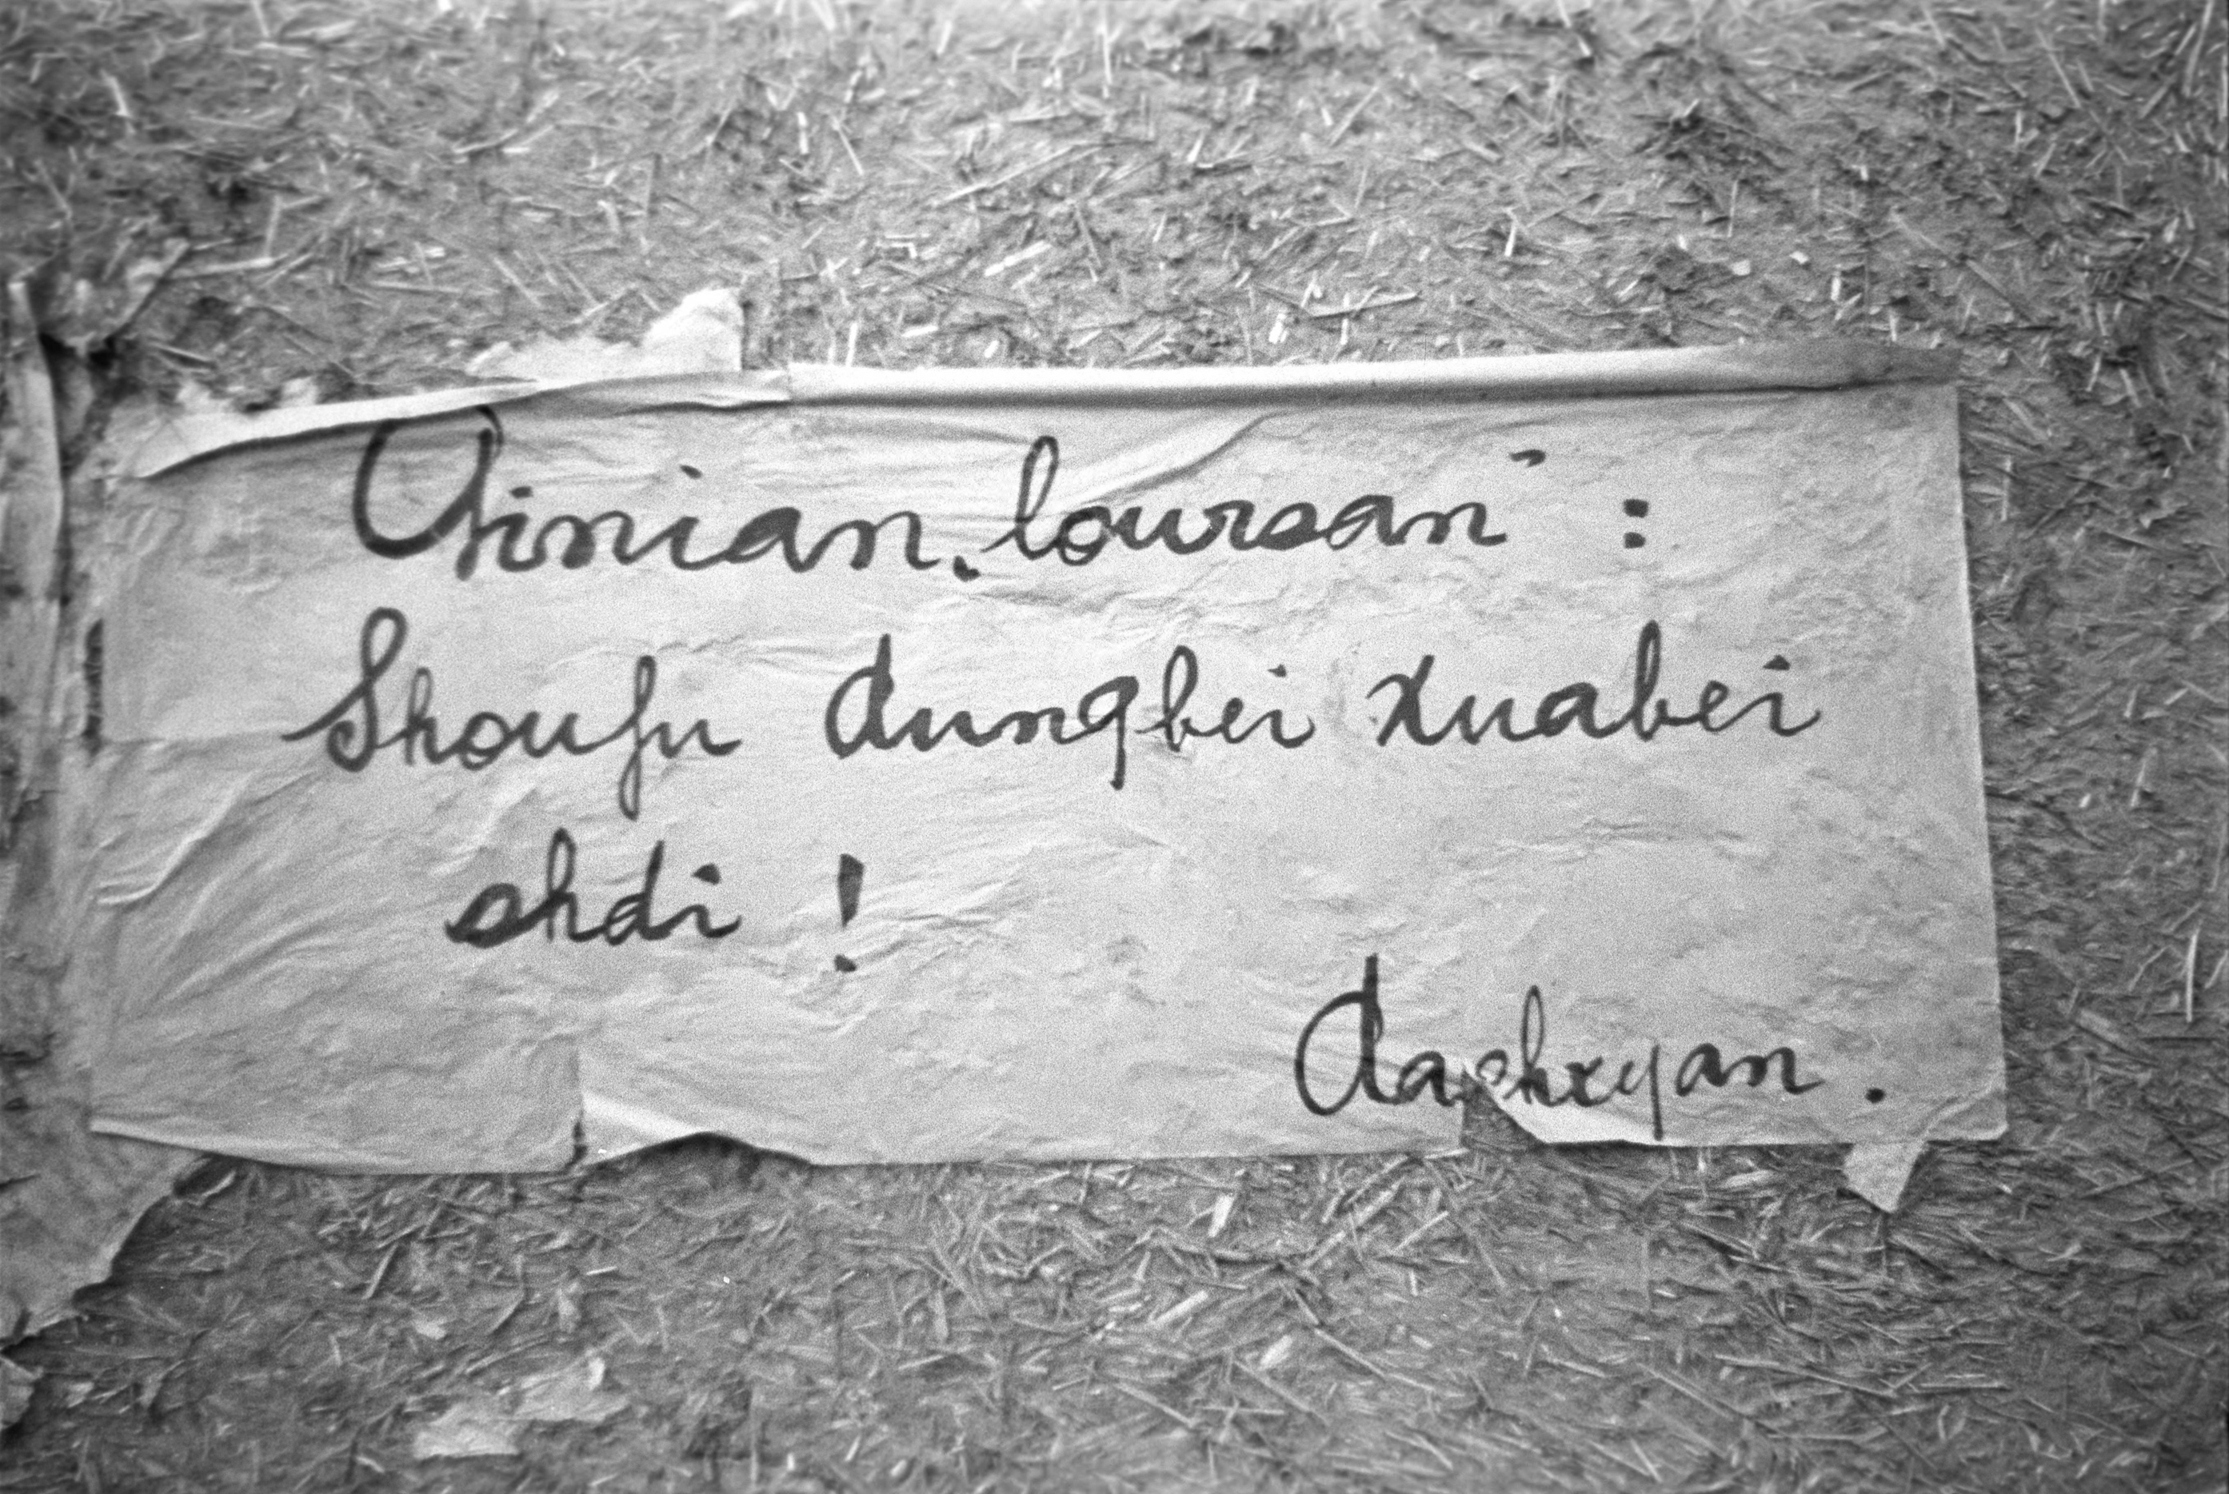 Ginian „loursan” :
Shoufu dungbei xuabei
shdi !
dashxyan .